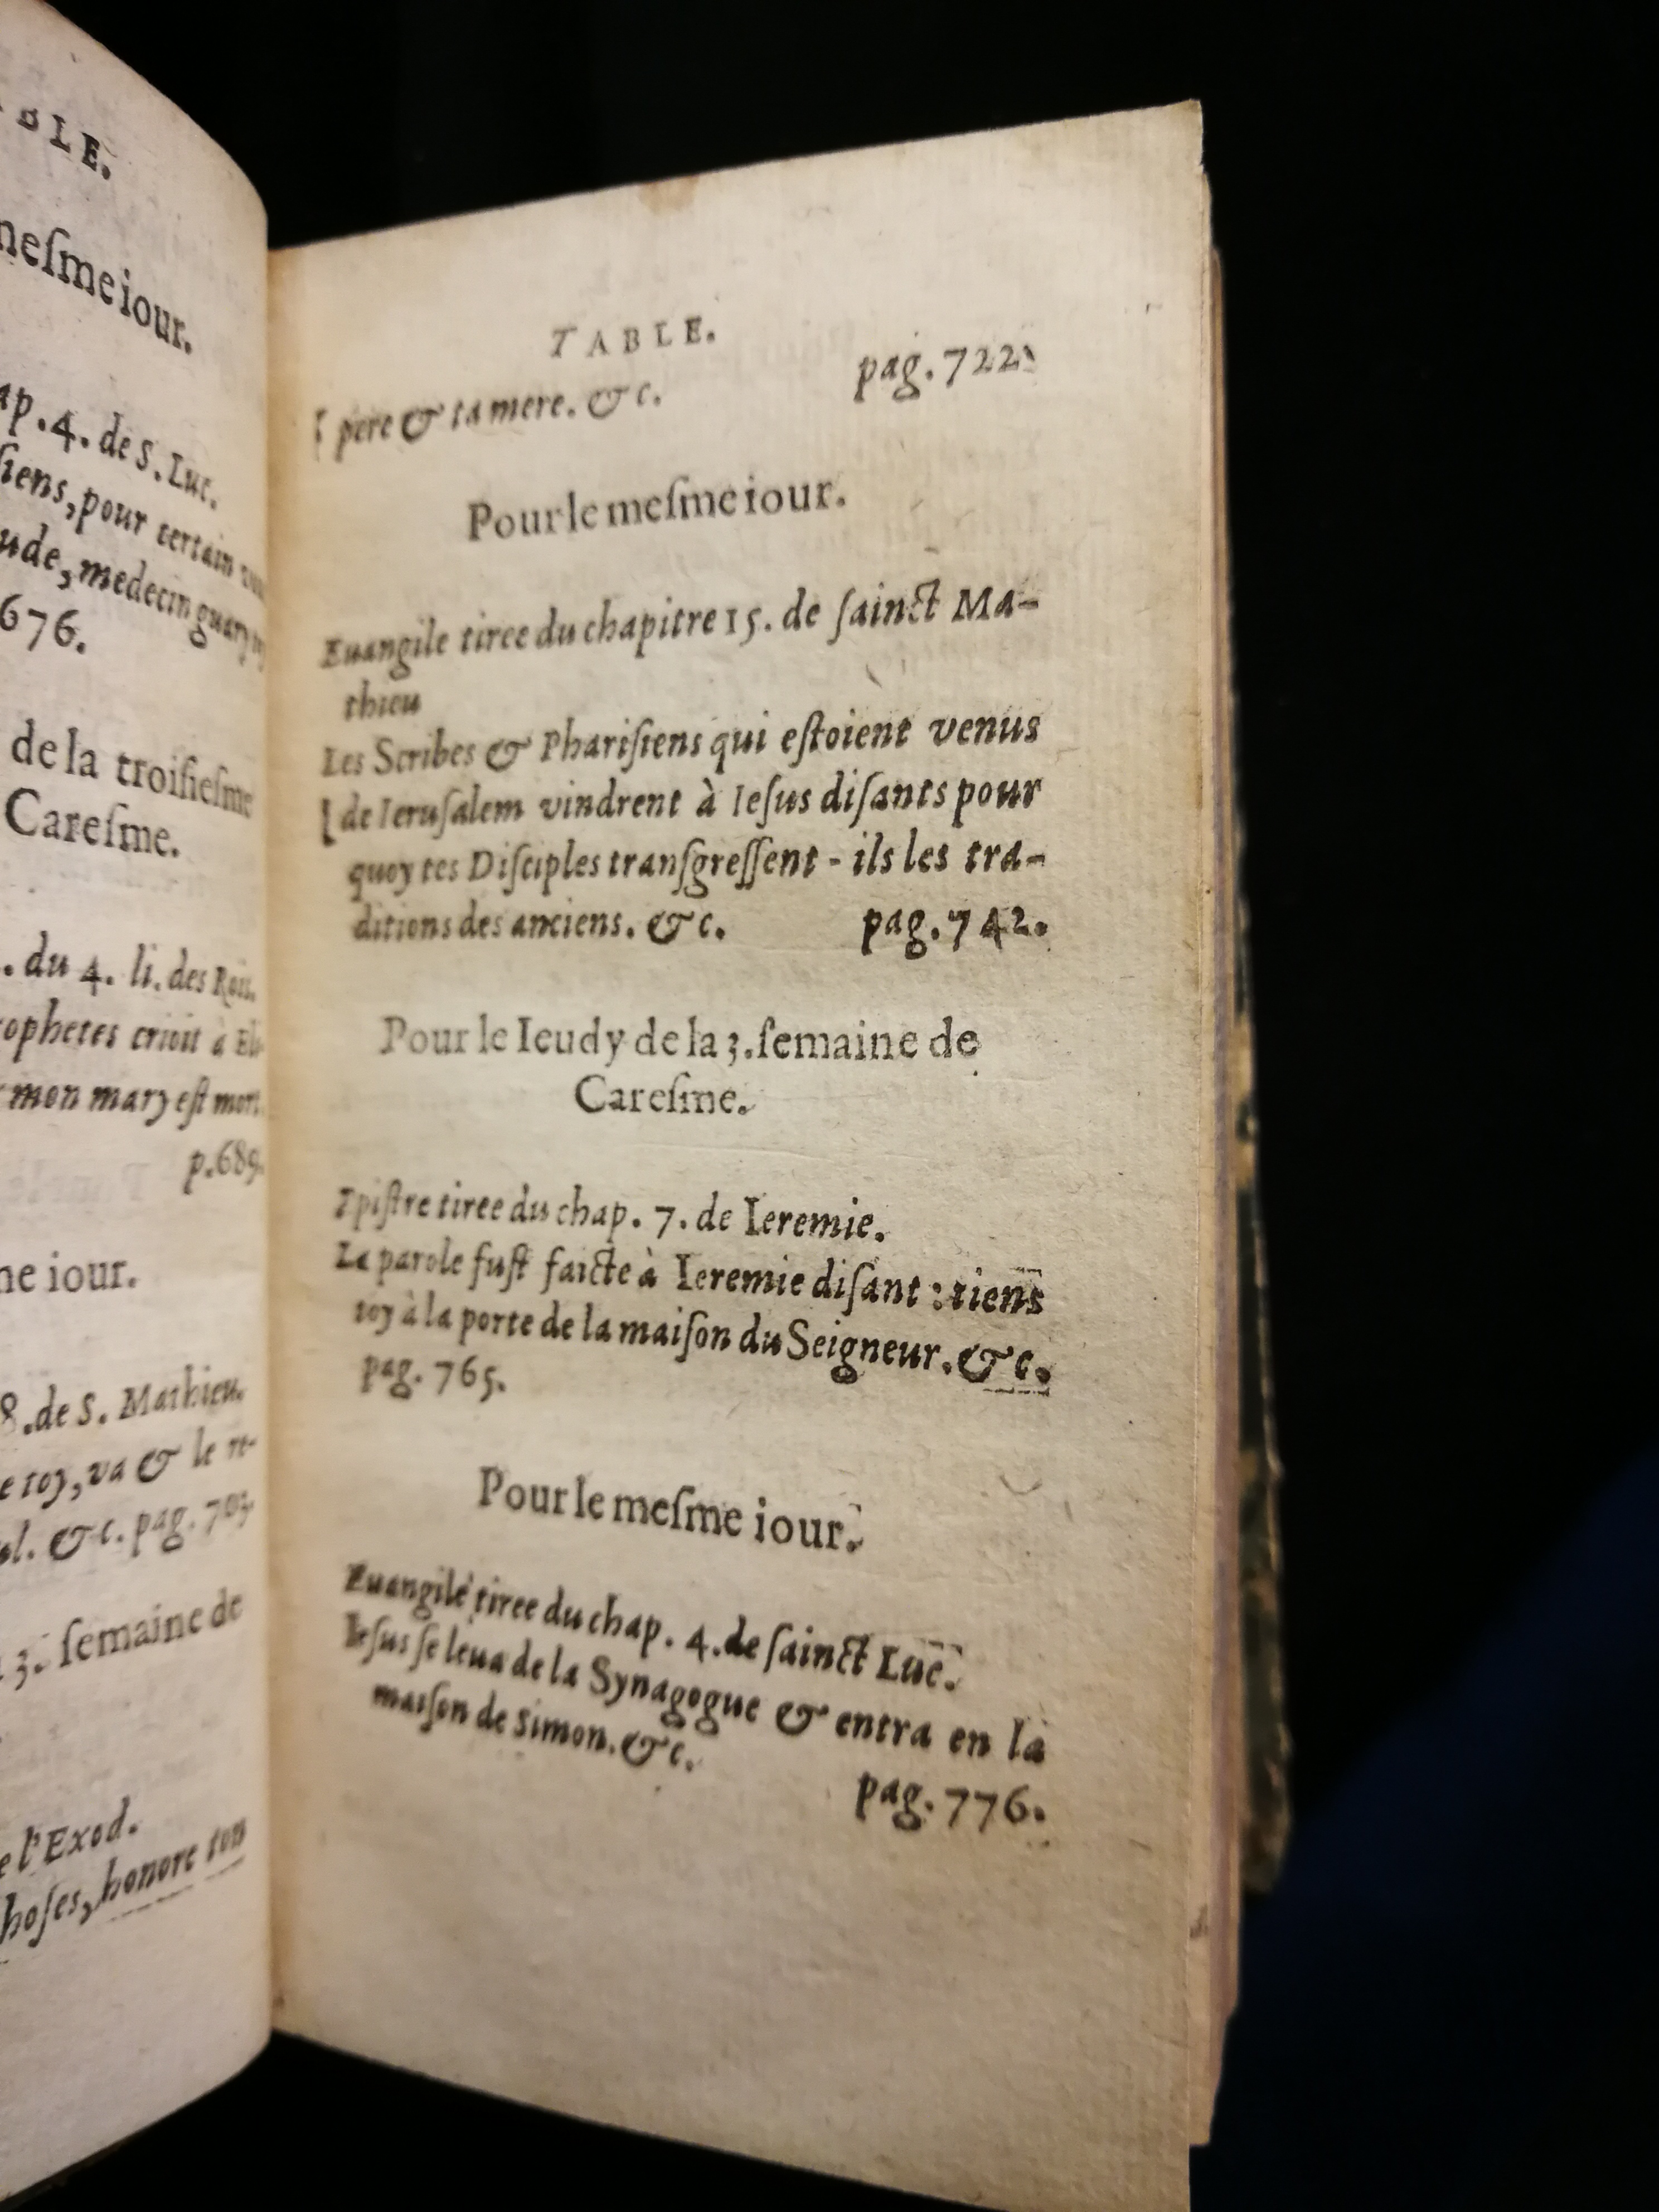 BLE.
meſme iour.
ap. 4. de S. Luc.
ſiens, pour certain
ude, medecin guary
676.
de la troiſieſme
Careſme.
. du 4. li. des Rois.
ophetes crioit à
mon mary eſt mort
p.689.
me iour.
8. de S. Mathieu.
e toy, va & le re-
ol. &c. pag. 703.
3. ſemaine de
e l'Exod.
hoſes, honore ton
TABLE.
pere & ta mere. &c. pag. 722.
Pour le meſme iour.
Euangile tiree du chapitre 15. de ſainct Ma-
thieu
Les Scribes & Phariſiens qui eſtoient venus
de Ieruſalem vindrent à Ieſus diſants pour
quoy tes Diſciples tranſgreſſent - ils les tra-
ditions des anciens. &c. pag. 742.
Pour le Ieudy de la 3. ſemaine de
Careſme.
Epiſtre tiree du chap. 7. de Ieremie.
La parole fuſt faicte à Ieremie diſant : tiens
toy à la porte de la maiſon du Seigneur. &c.
pag. 765.
Pour le meſme iour.
Euangile tiree du chap. 4. de ſainct Luc.
Ieſus ſe leua de la Synagogue & entra en la
maiſon de Simon. &c.
pag. 776.